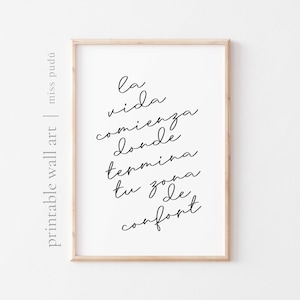 la
vida
comienza
donde
termina
tu zona
de
confort
printable wall art | miss pudú